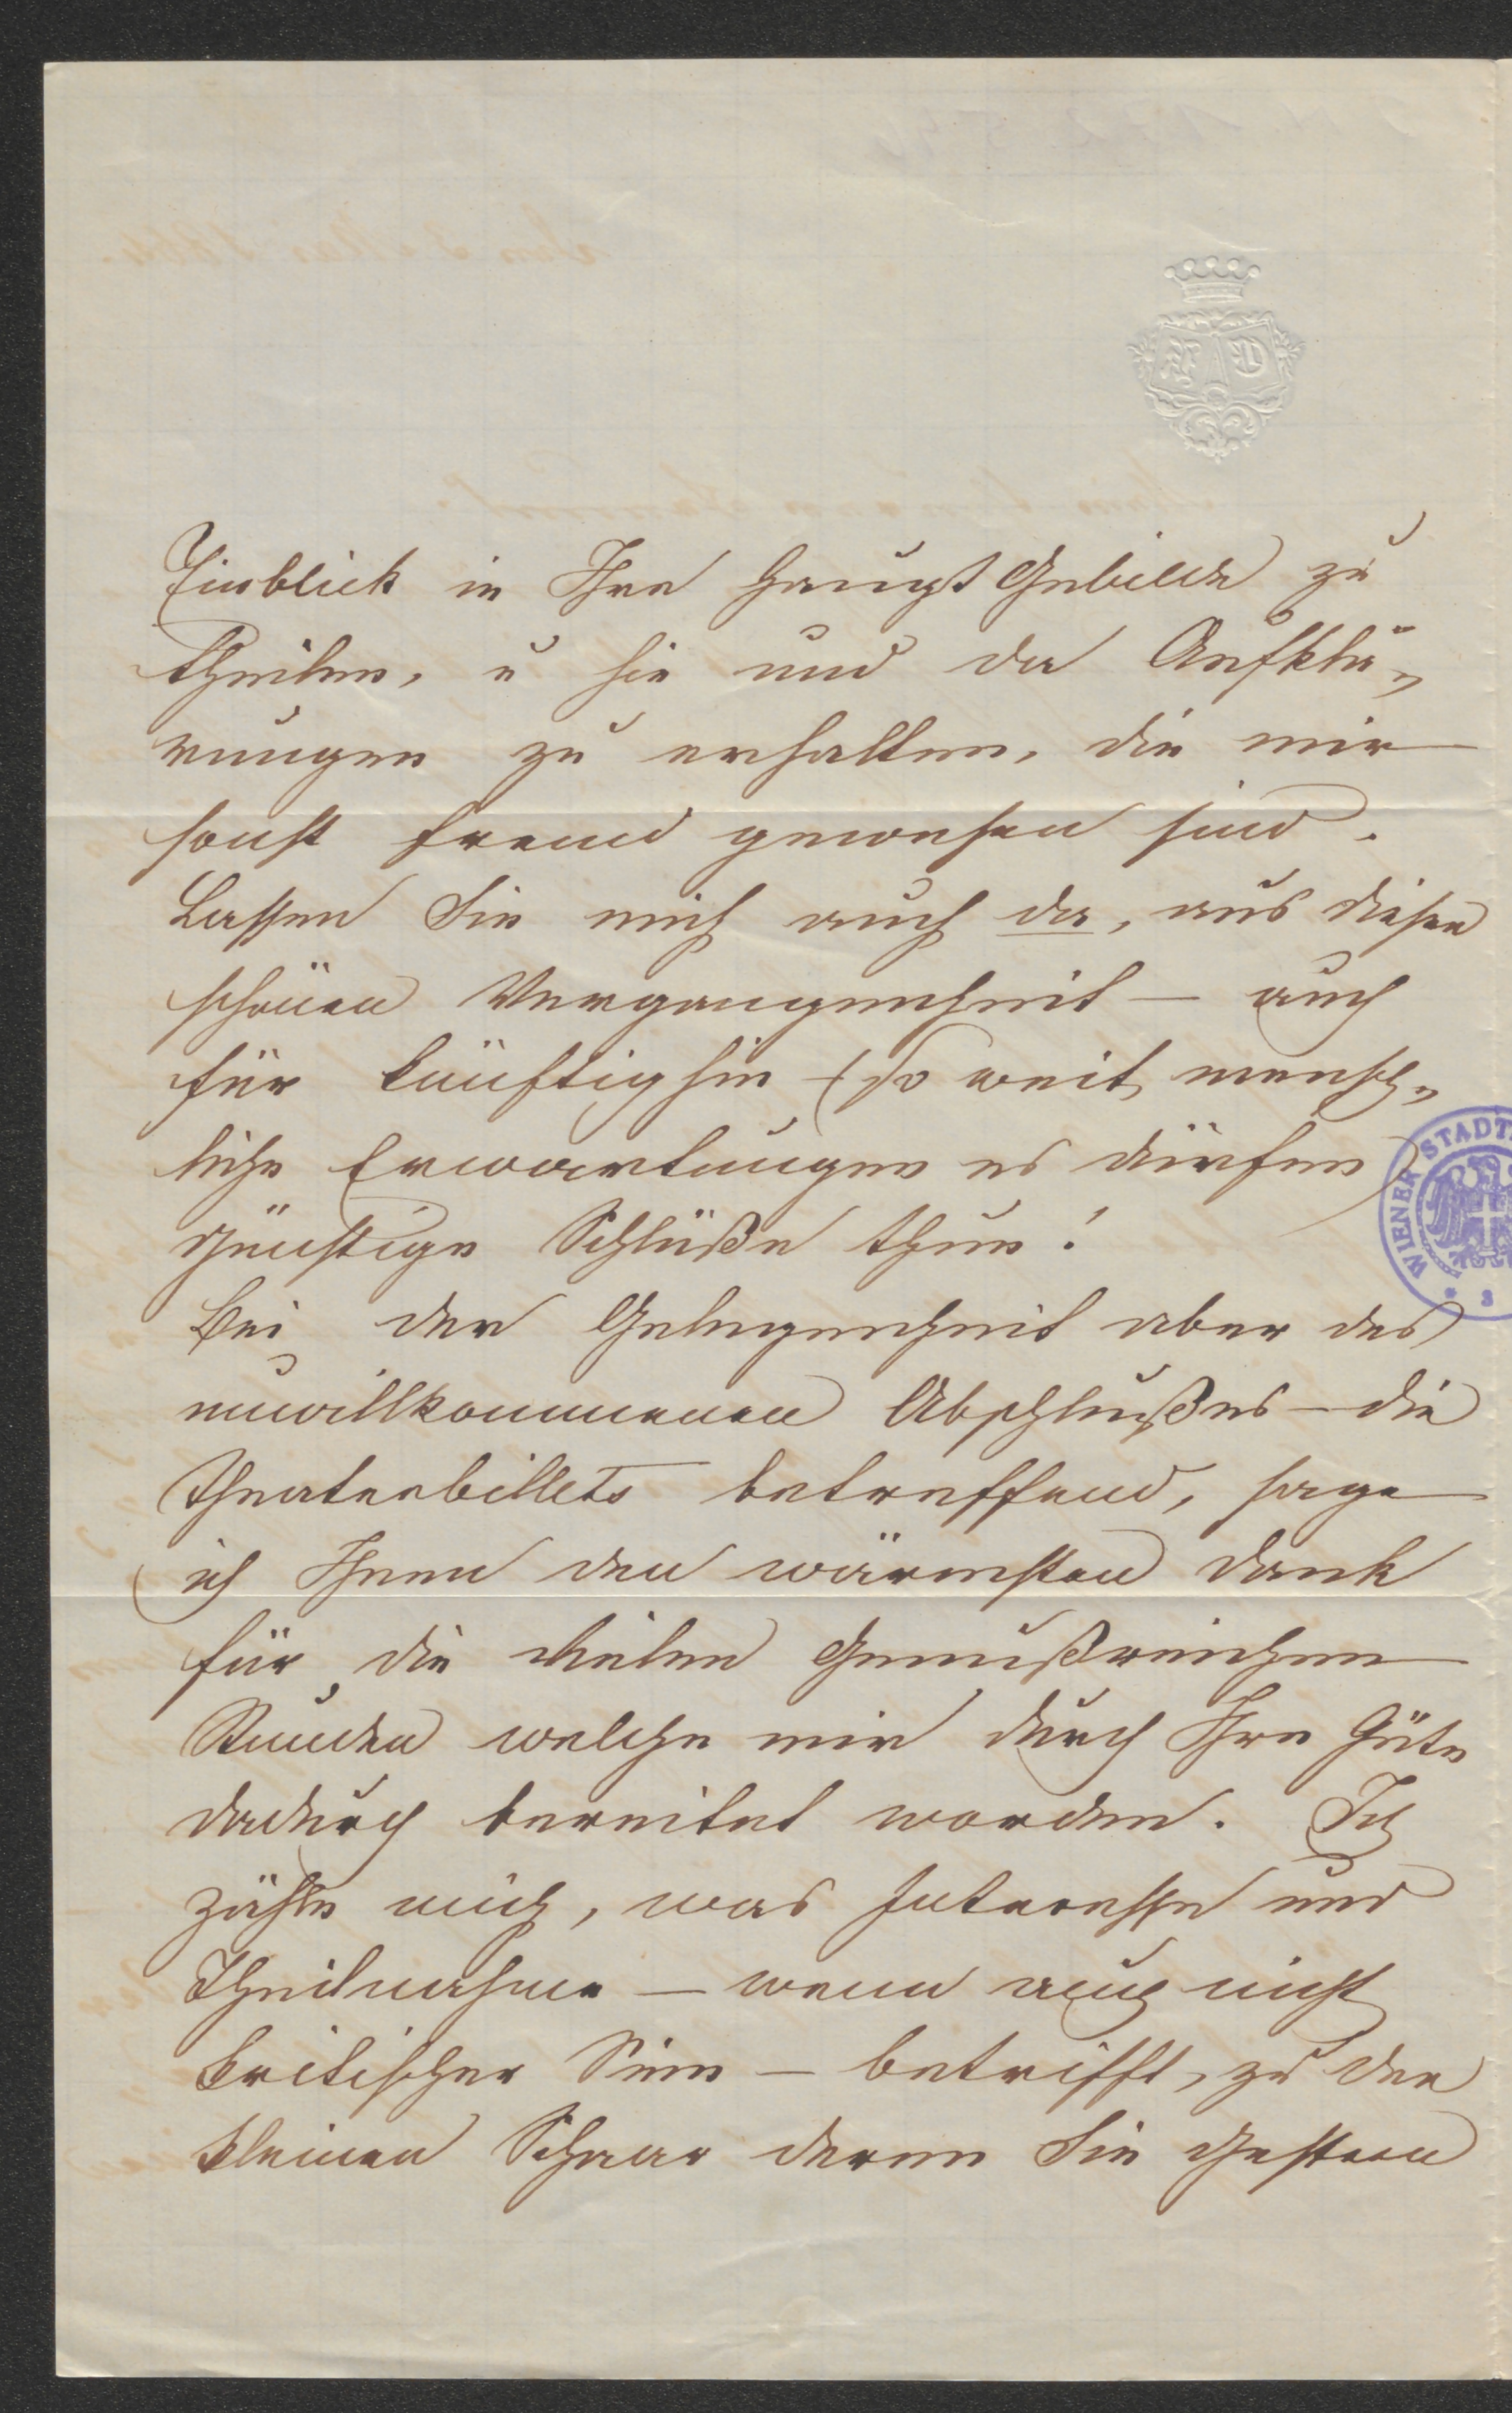 Einblick in Ihre Haupt Gebilde zu
theilen, u hie und da Aufklä„
rungen zu erhalten, die mir
sonst fremd gewesen sind.
Lassen Sie mich auch da, aus dieser
schönen Vergangenheit – auch
für künftighin – (so weit mensch„
liche Erwartungen es dürfen)
günstige Schlüße thun!
Bei der Gelegenheit aber des
unwillkommenen Abschlußes – die
Theaterbillets betreffend, sage
ich Ihnen den wärmsten Dank
für die vielen Genußreichen
Stunden welche mir durch Ihre Güte
dadurch bereitet worden. Ich
zähle mich, was Interesse und
Theilnahme – wenn auch nicht
kritischer Sinn – betrifft, zu der
kleinen Schaar deren Sie gestern
WIENER STADT